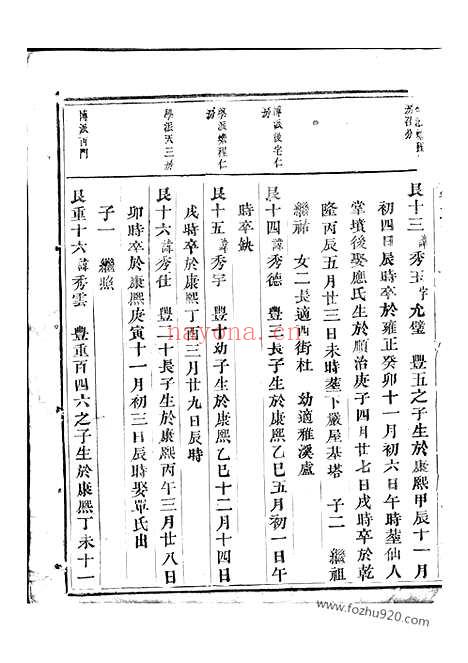 艮十三諱秀玉字允璧　豐五之子生於康熙甲辰十一月
初四日辰時卒於雍正癸卯十一月初六日午時塟仙人
掌墳後娶應氏生於順治庚子四月廿七日戌時卒於乾
隆丙辰五月廿三日未時塟下嚴屋基塔　子二　繼祖
繼祐　女二長適西街杜　幼適雅溪盧
博派後宅仁房
艮十四諱秀德　豐三長子生於康熙乙巳五月初一日午
時卒缺
學派樂程仁房
艮十五諱秀宇　豐十幼子生於康熙乙巳十二月十四日
戌時卒於康熙丁酉三月廿九日辰時
學派天三房
艮十六諱秀仕　豐二十長子生於康熙丙午三月廿八日
卯時卒於康熙庚寅十一月初三日辰時娶單氏出
子一　繼照
博派西門
艮重十六諱秀雲　豐重百四六之子生於康熙丁未十一
nayona.cn
www.fozhu920.com